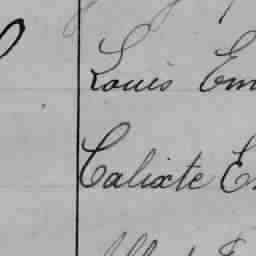 Louis Em
Calixte E